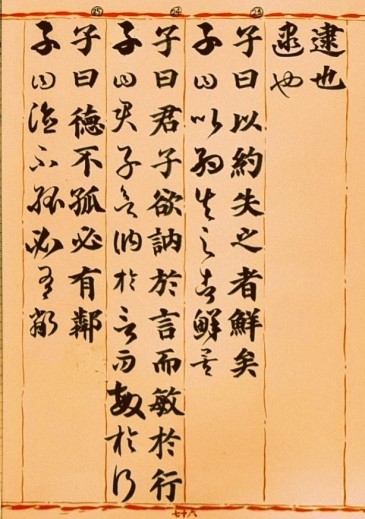 逮也
逮也
㉓
子曰以約失之者鮮矣
子曰以約失之者鮮矣
㉔
子曰君子欲訥於言而敏於行
子曰君子欲訥於言而敏於行
㉕
子曰德不孤必有鄰
子曰德不孤必有鄰